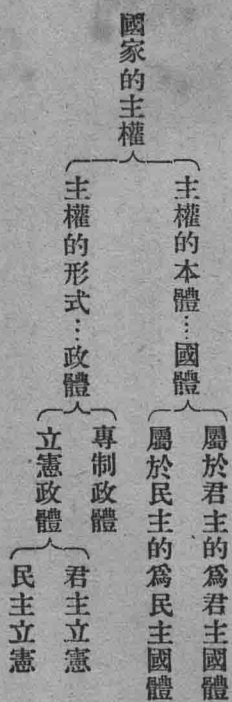 國家的主權
主權的本體…國體
屬於君主的爲君主國體
屬於民主的爲民主國體
主權的形式…政體
專制政體
立憲政體
君主立憲
民主立憲